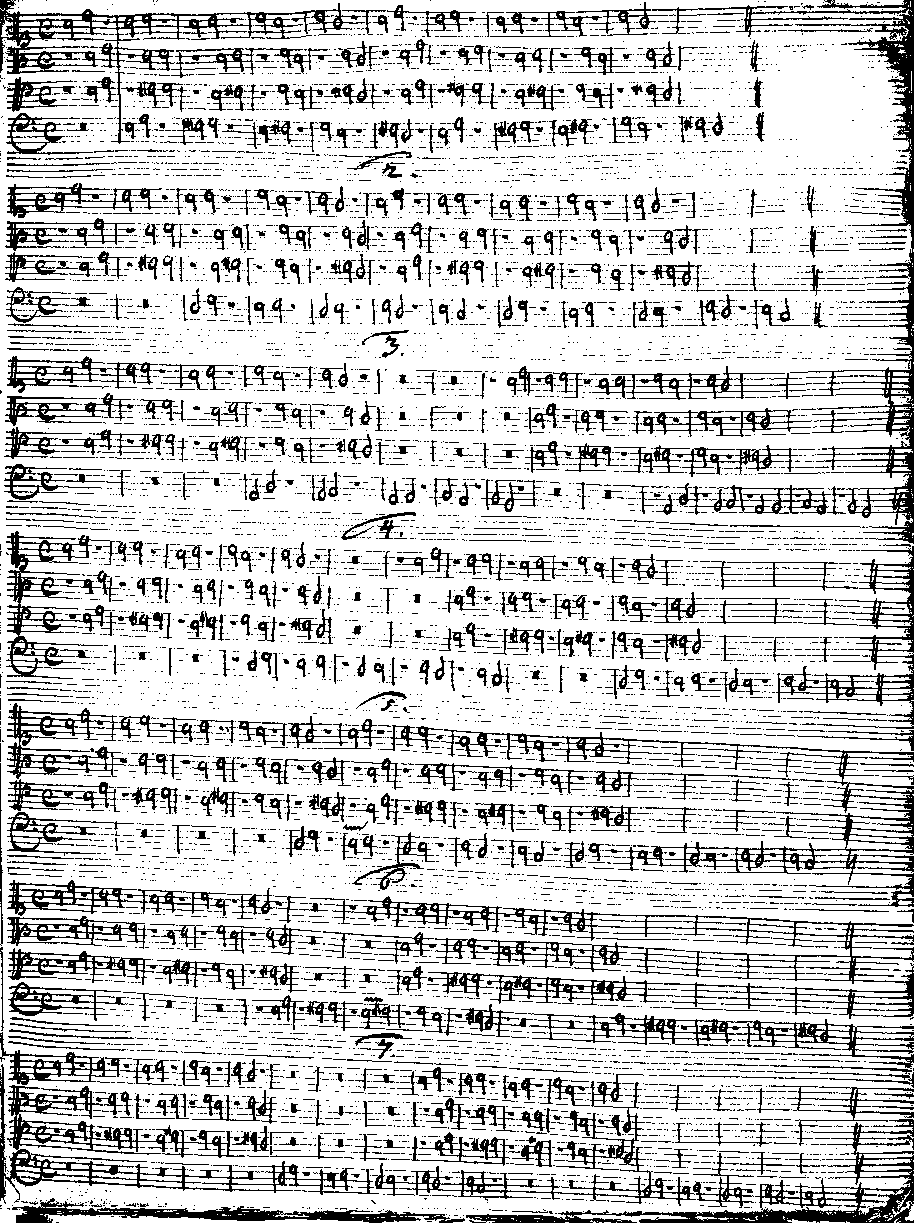 2.
3.
4.
5.
6
7.